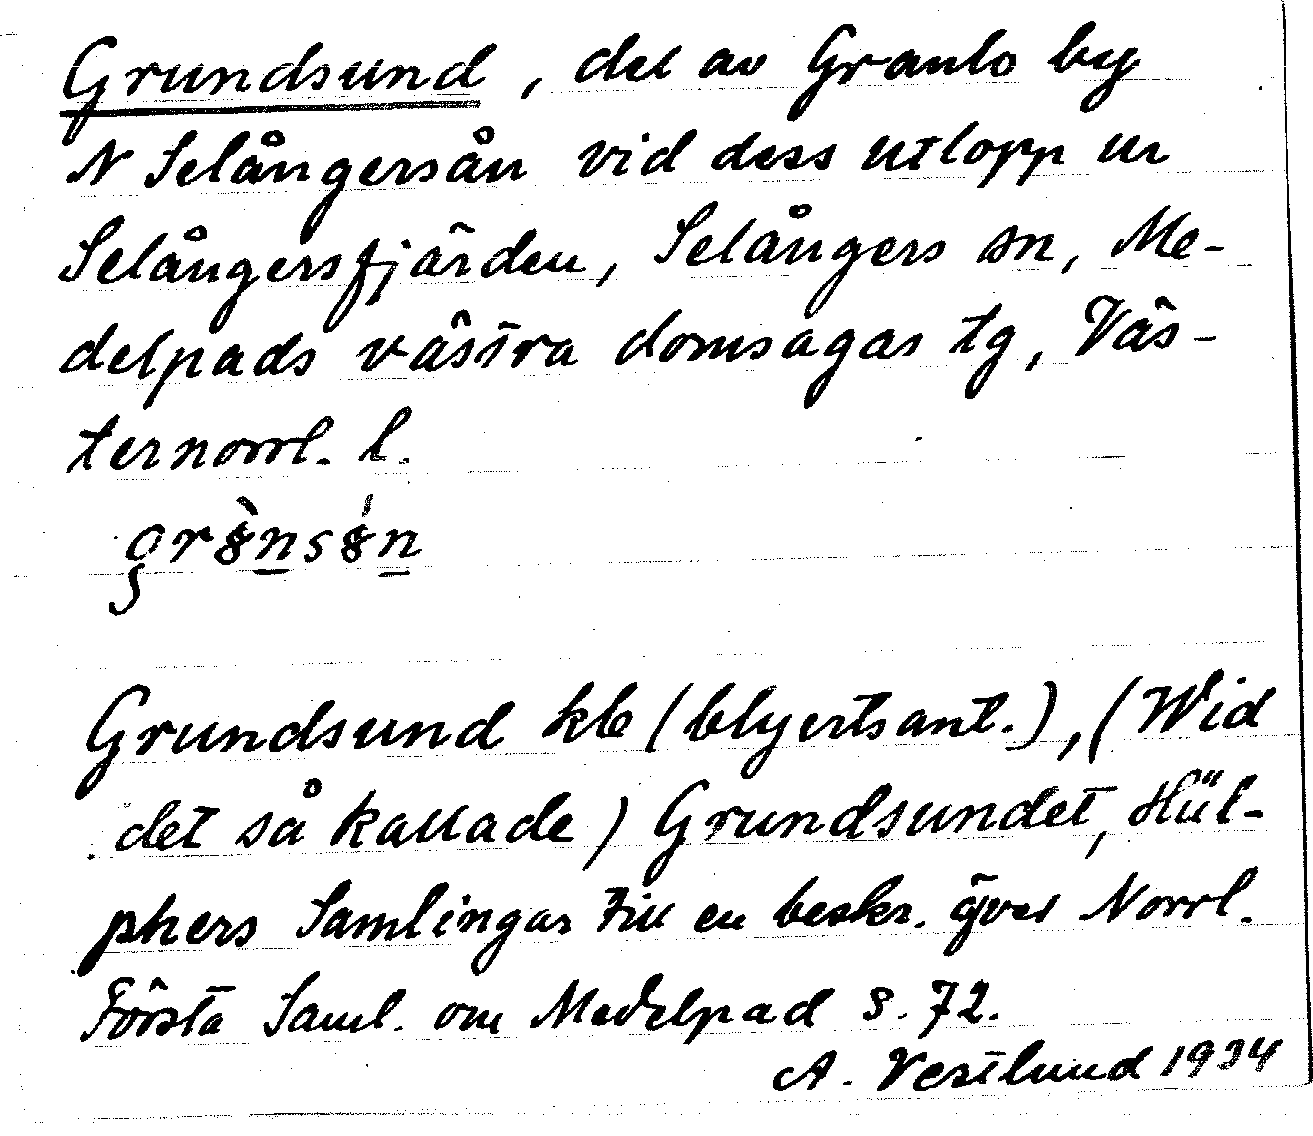 Grundsund, del av Granlo by
N Selångersån vid dess utlopp ur
Selångersfjärden, Selångers sn, Me-
delpads västra domsagas tg, Väs-
ternorrl. l.
Grundsund kb (blyertsant.), (Wid
det så kallade) Grundsundet, Hül-
phers Samlingar till en beskr. över Norrl.
Första Saml. om Medelpad s. 72.
A. Vestlund 1934